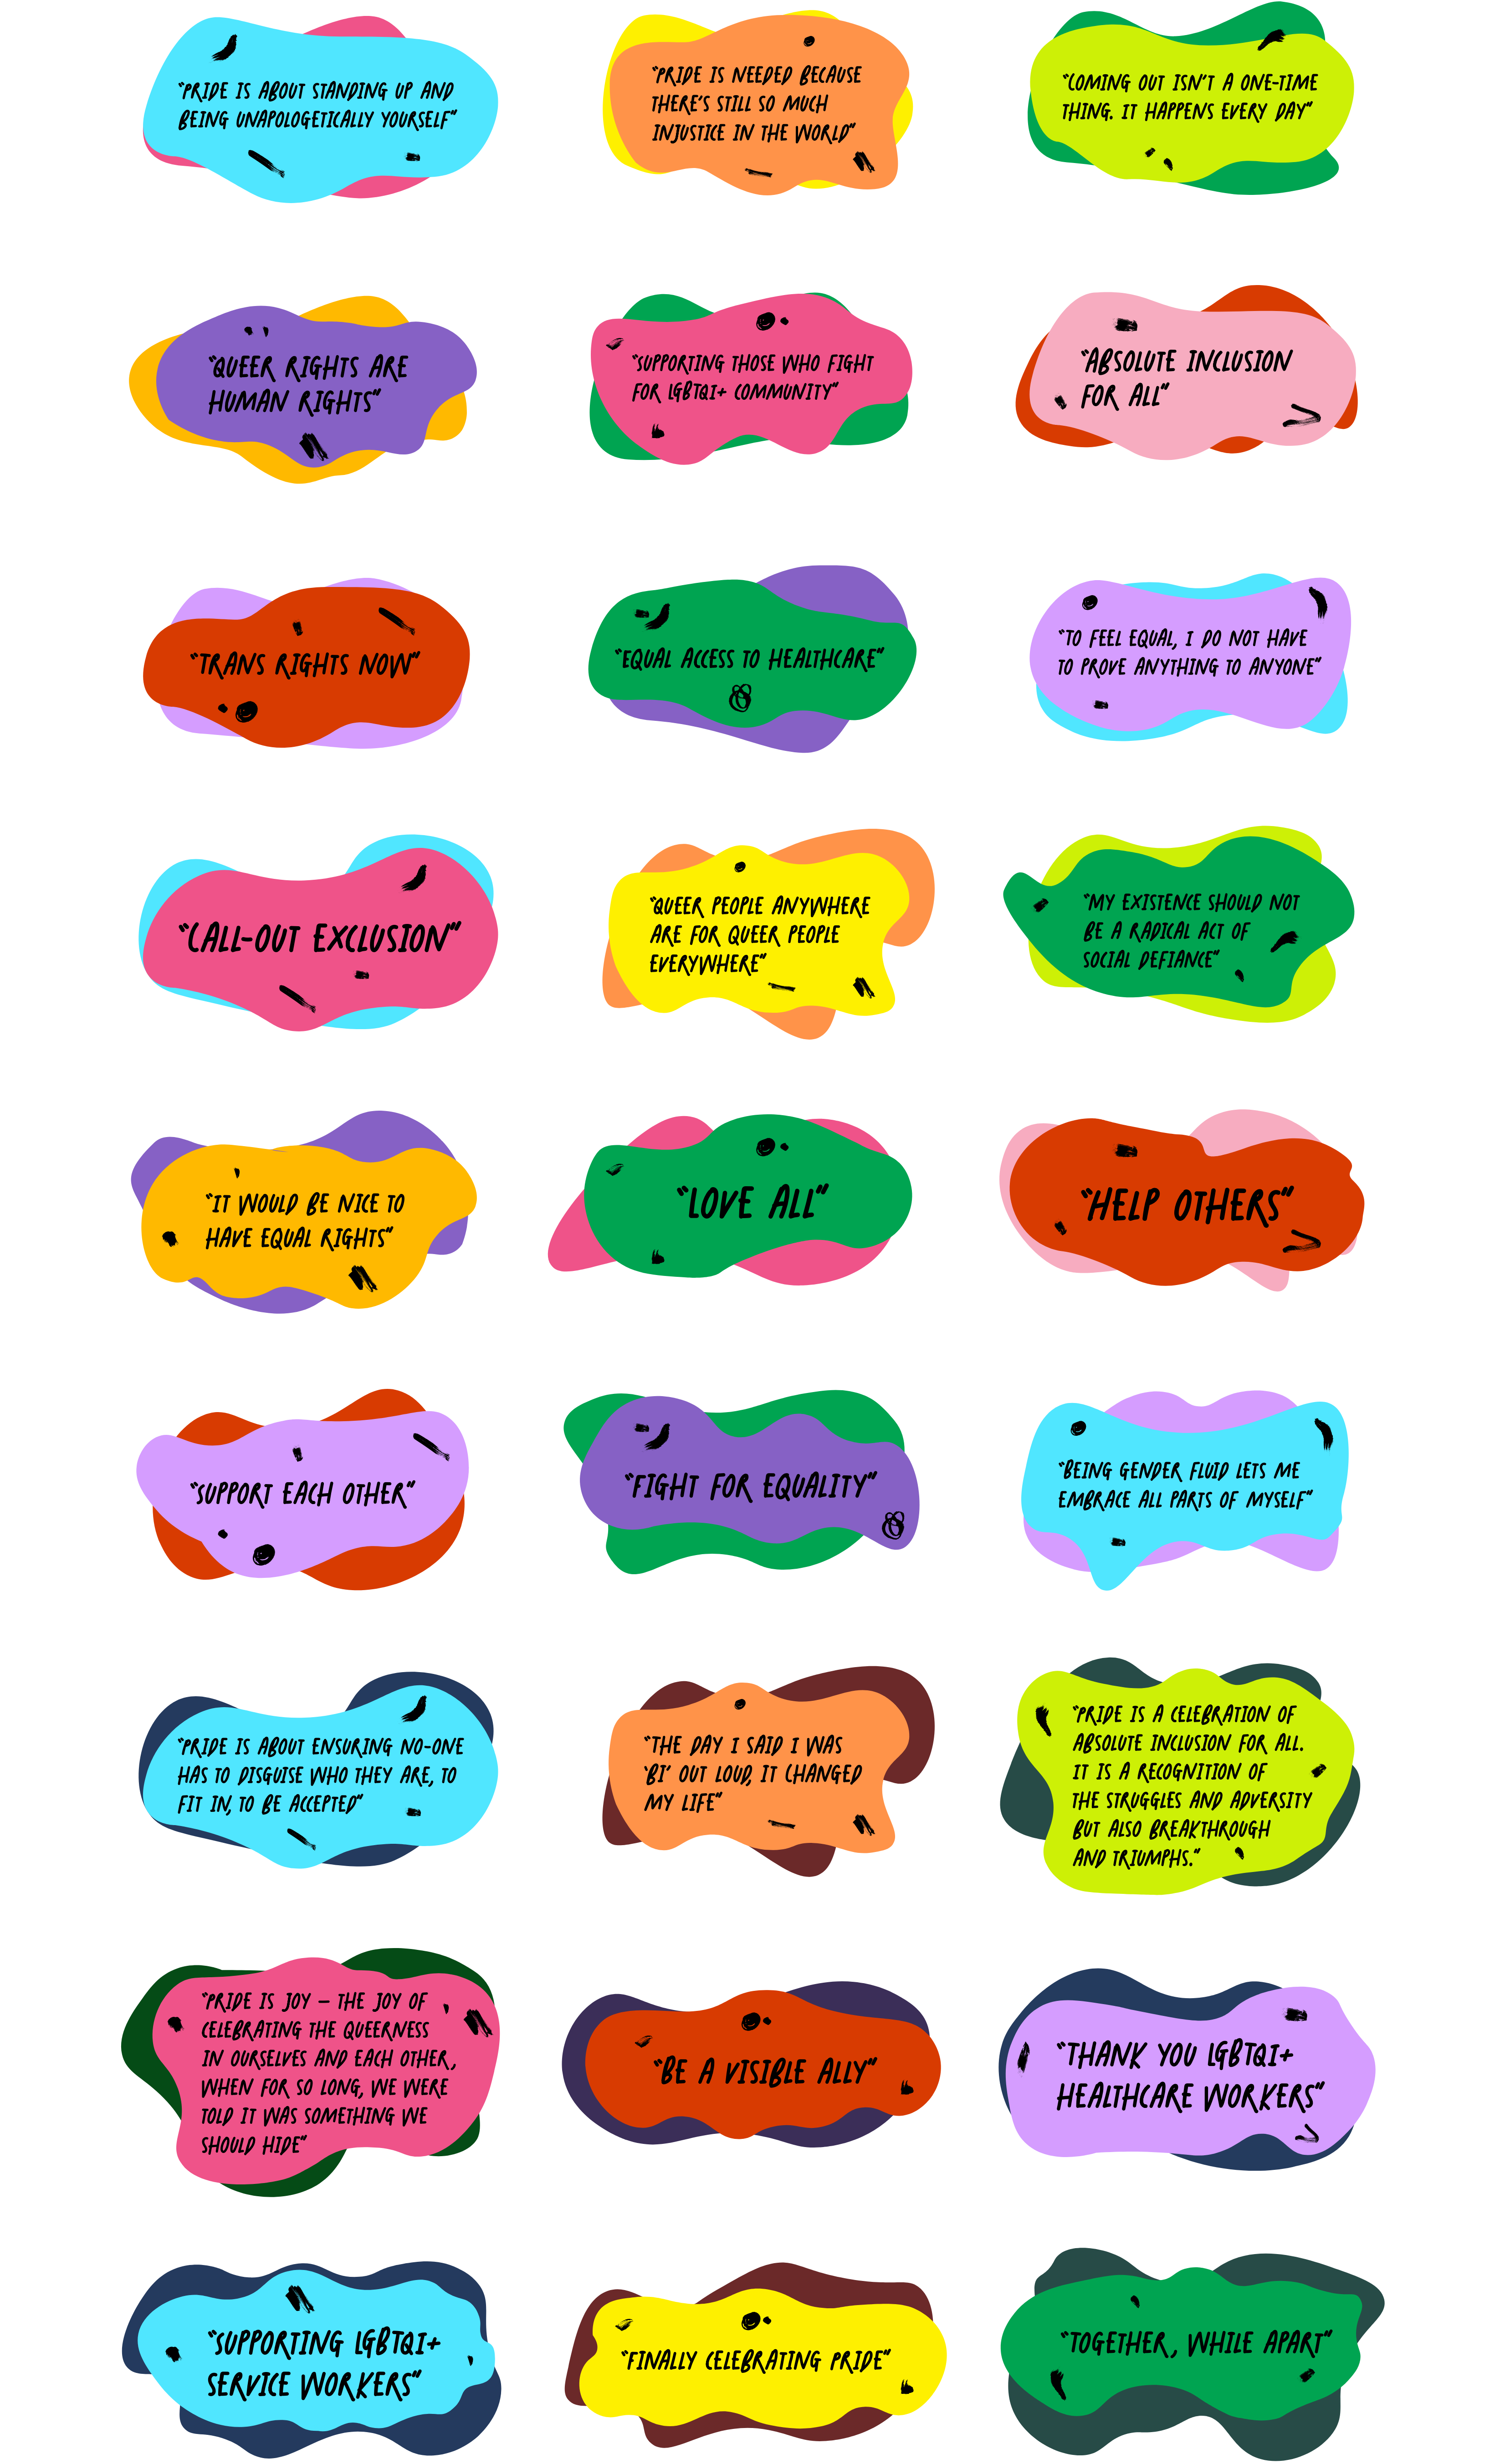 “PRIDE IS ABOUT STANDING UP AND
BEING UNAPOLOGETICALLY YOURSELF”
“PRIDE IS NEEDED BECAUSE
THERE'S STILL SO MUCH
INJUSTICE IN THE WORLD”
“COMING OUT ISN'T A ONE-TIME
THING. IT HAPPENS EVERY DAY”
“QUEER RIGHTS ARE
HUMAN RIGHTS”
“SUPPORTING THOSE WHO FIGHT
FOR LGBTQI+ COMMUNITY”
“ABSOLUTE INCLUSION
FOR ALL”
“TRANS RIGHTS NOW”
“EQUAL ACCESS TO HEALTHCARE”
“TO FEEL EQUAL, I DO NOT HAVE
TO PROVE ANYTHING TO ANYONE”
“CALL-OUT EXCLUSION”
“QUEER PEOPLE ANYWHERE
ARE FOR QUEER PEOPLE
EVERYWHERE”
“MY EXISTENCE SHOULD NOT
BE A RADICAL ACT OF
SOCIAL DEFIANCE”
“IT WOULD BE NICE TO
HAVE EQUAL RIGHTS”
“LOVE ALL”
“HELP OTHERS”
“SUPPORT EACH OTHER”
“FIGHT FOR EQUALITY”
“BEING GENDER FLUID LETS ME
EMBRACE ALL PARTS OF MYSELF”
“PRIDE IS ABOUT ENSURING NO-ONE
HAS TO DISGUISE WHO THEY ARE, TO
FIT IN, TO BE ACCEPTED”
“THE DAY I SAID I WAS
‘BI’ OUT LOUD, IT CHANGED
MY LIFE”
“PRIDE IS A CELEBRATION OF
ABSOLUTE INCLUSION FOR ALL.
IT IS A RECOGNITION OF
THE STRUGGLES AND ADVERSITY
BUT ALSO BREAKTHROUGH
AND TRIUMPHS.”
“PRIDE IS JOY – THE JOY OF
CELEBRATING THE QUEERNESS
IN OURSELVES AND EACH OTHER,
WHEN FOR SO LONG, WE WERE
TOLD IT WAS SOMETHING WE
SHOULD HIDE”
“BE A VISIBLE ALLY”
“THANK YOU LGBTQI+
HEALTHCARE WORKERS”
“SUPPORTING LGBTQI+
SERVICE WORKERS”
“FINALLY CELEBRATING PRIDE”
“TOGETHER, WHILE APART”